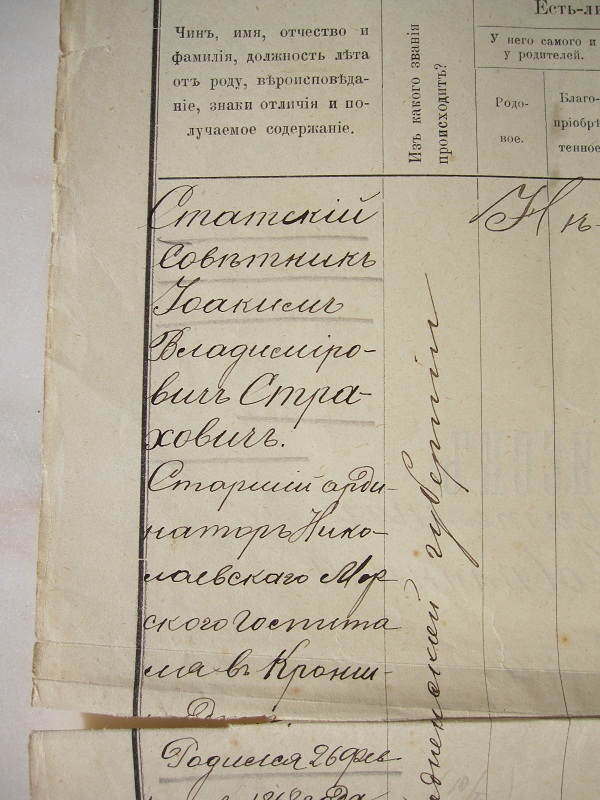 Чинъ, имя, отчество и
фамилія, должность лѣта
отъ роду, вѣроисповѣда-
ніе, знаки отличія и по-
лучаемое содержаніе.
Изъ какого званія
происходитъ?
Есть-ли
У него самого и
у родителей.
Родо-
вое.
Благо-
пріобрѣ-
тенное
Статскій
Совѣтникъ
Іоакимъ
Владиміро-
вичъ Стра-
ховичъ.
Старшій орди-
наторъ Нико-
лаевскаго Мор
ского Госпита
ля въ Кронш-
Родился 26 Фев
губерніи
Нѣ-